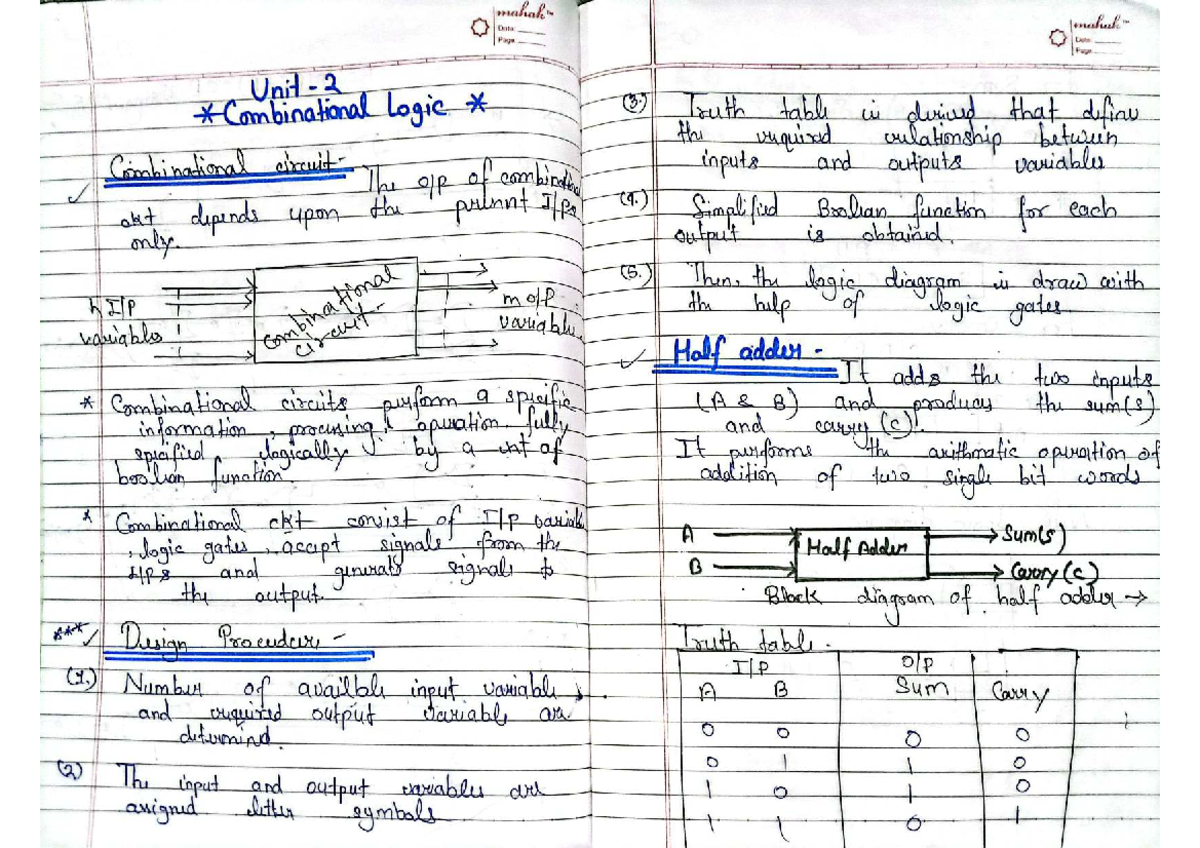 mahak™
Date:
Page:
Unit - 2
* Combinational Logic *
Combinational circuit -
The o/p of combinational
ckt depends upon the present I/Ps
only.
n I/P
variables
Combinational
circuit -
m o/p
variables
* Combinational circuits perform a specific
information, processing operation fully
specified logically by a set of
boolean function.
* Combinational ckt consist of I/P variable
, logic gates, accept signals from the
I/Ps and generate signals to
the output.
*** Design Procedure -
(1.) Number of availble input variables
and required output variable are
determind.
(2) The input and output variables are
assigned letter symbols
mahak™
Date:
Page:
(3.) Truth table is derived that define
the required relationship between
inputs and outputs variables
(4.) Simplified Boolean function for each
output is obtained.
(5.) Then, the logic diagram is draw with
the help of logic gates.
Half adder -
It adds the two inputs
(A & B) and produces the sum(s)
and carry (c).
It performs the arithmatic operation of
addition of two single bit words
A
B
Half Adder
Sum(s)
Carry (C)
Block diagram of half adder →
Truth table.
I/P O/P
A B Sum Carry
0 0 0 0
0 1 1 0
1 0 1 0
1 1 0 1